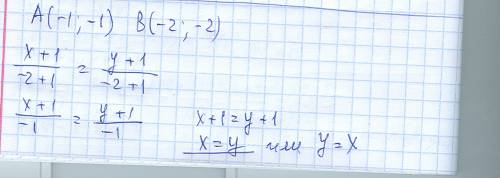 A(-1; -1) B(-2; -2)
x+1/-2+1 = y+1/-2+1
x+1/-1 = y+1/-1 x+1=y+1
x=y или y=x